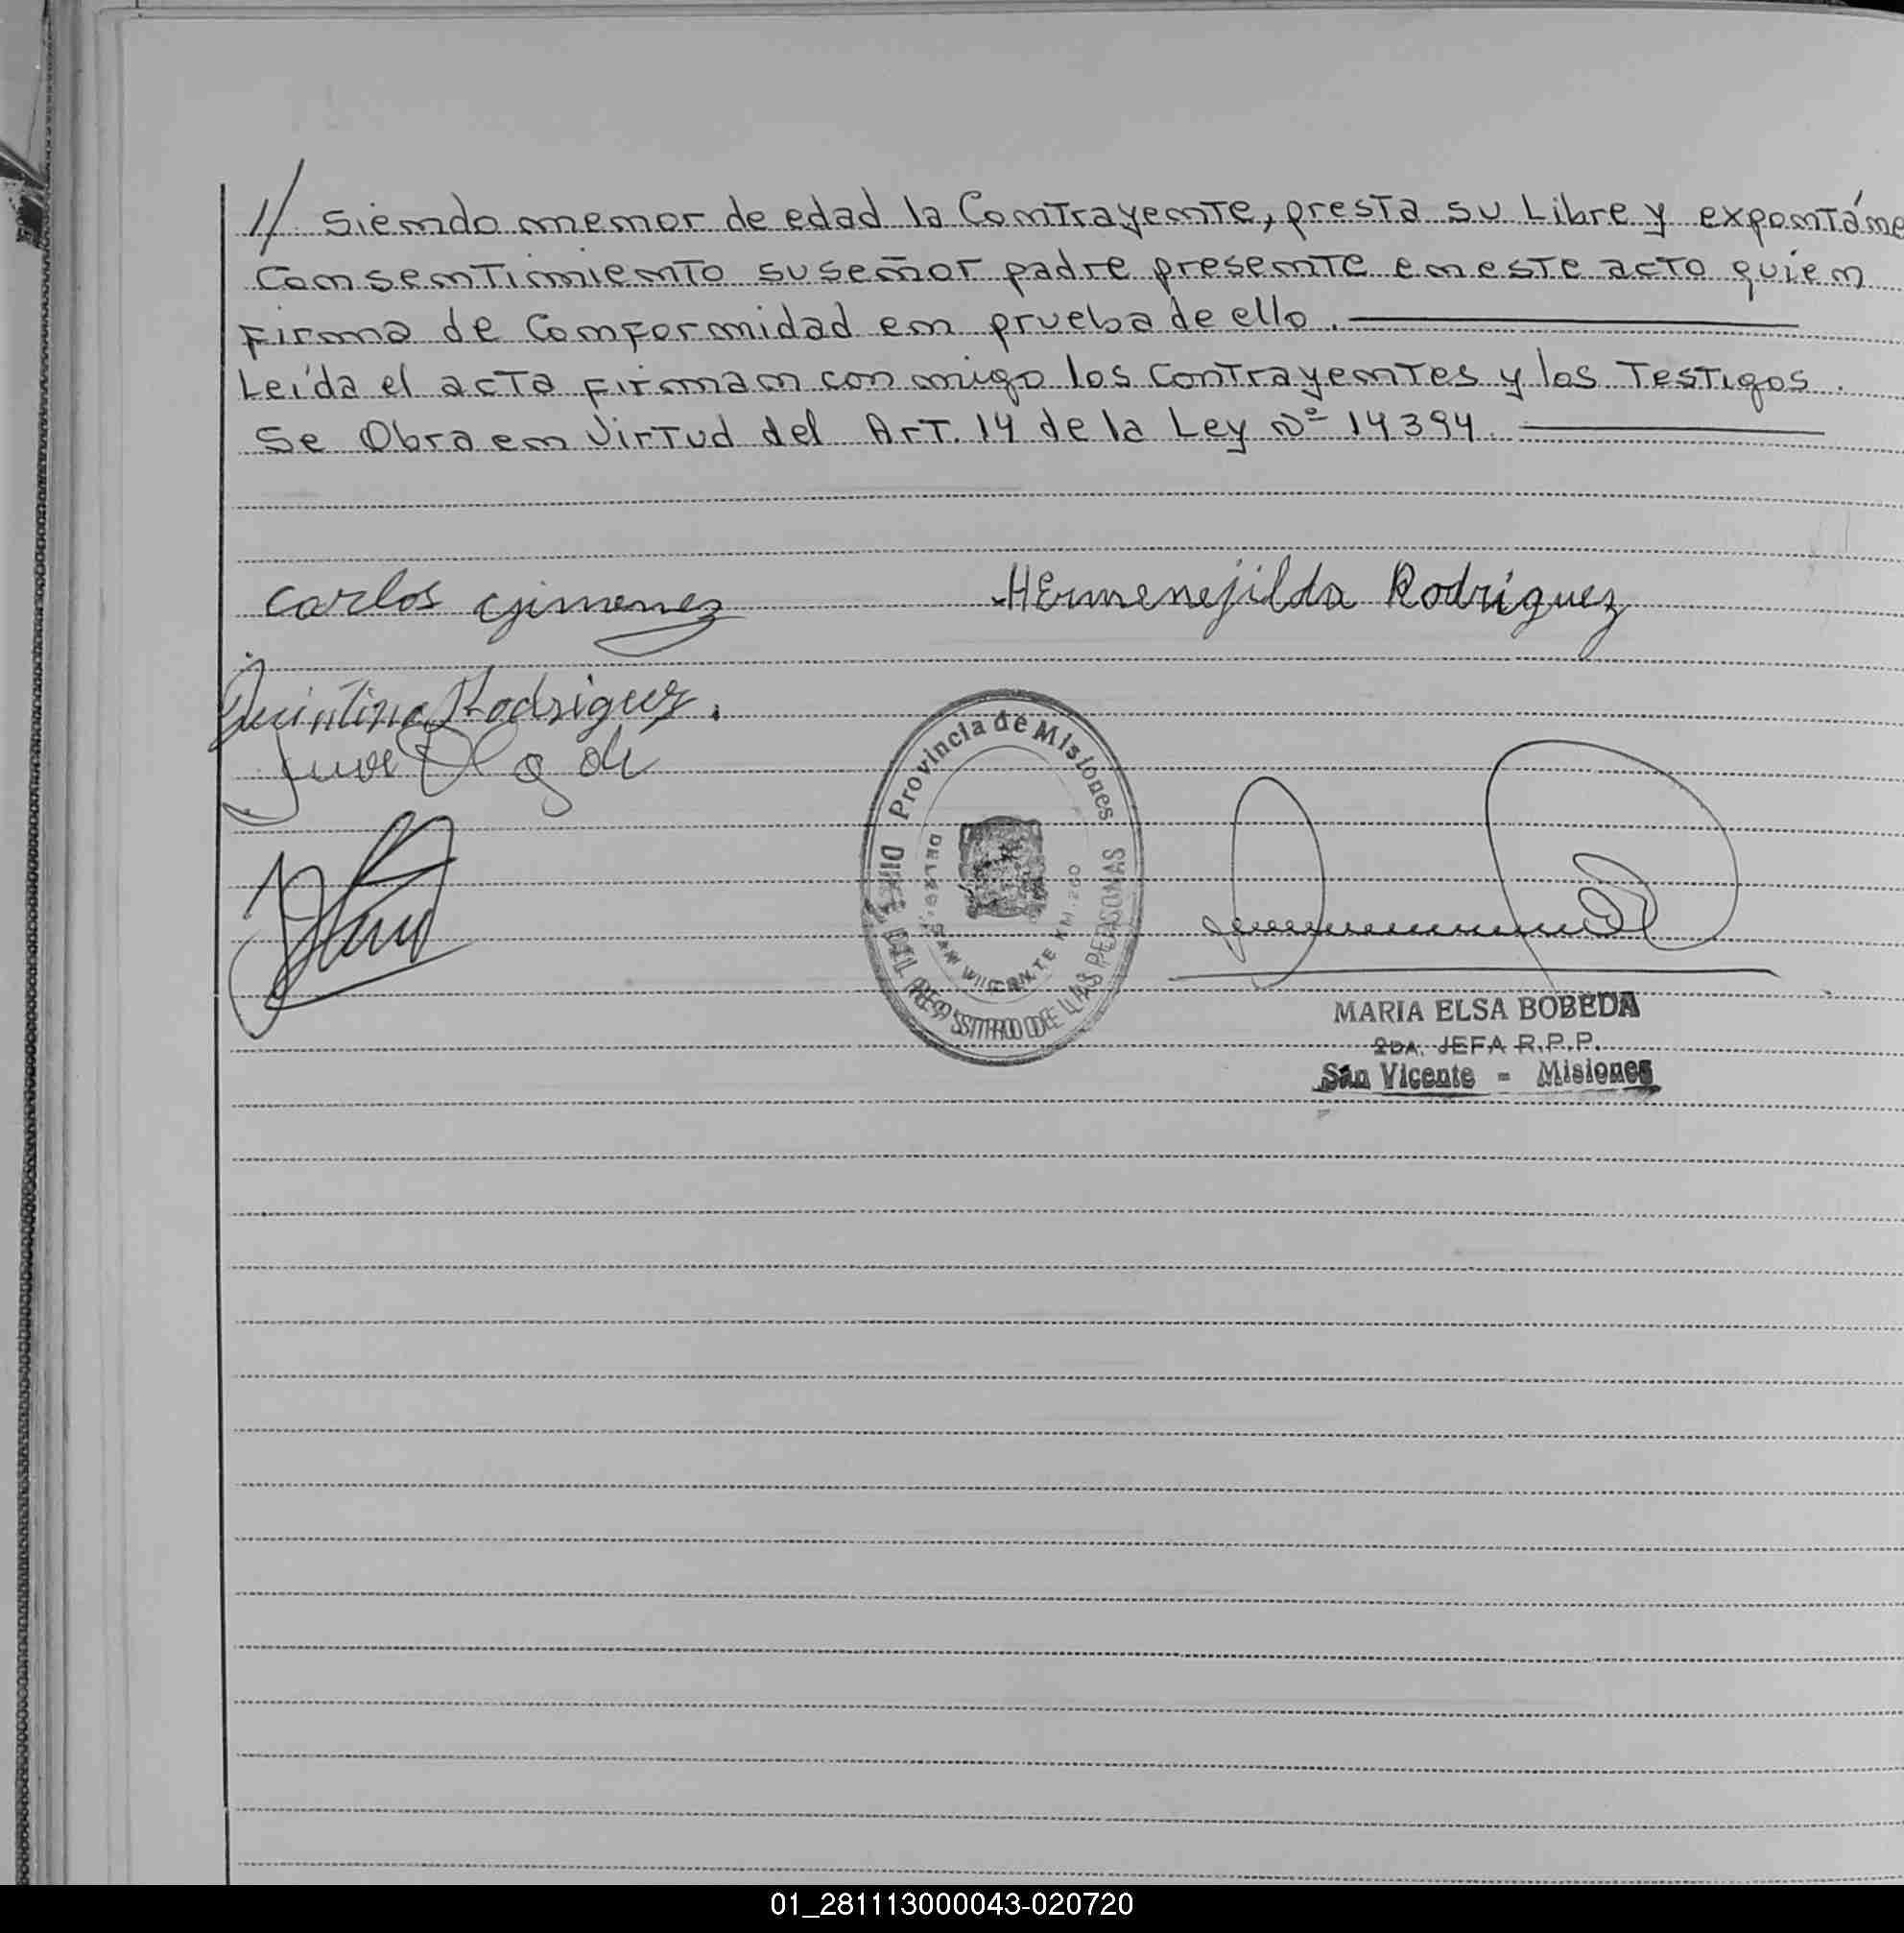 1/ Siendo menor de edad la Contrayente, presta su Libre y expontáne
Consentimiento su señor padre presente en este acto quien
Firma de Conformidad en prueba de ello.
Leída el acta Firman con migo los Contrayentes y los Testigos.
Se Obra en Virtud del Art. 14 de la Ley Nº 14394.
Carlos Gimenez
HErmenejilda Rodriguez
Quintino Rodriguez.
Provincia de Misiones
DELEG. SAN VICENTE KM. 260
DIREC. DEL REGISTRO DE LAS PERSONAS
MARIA ELSA BOBEDA
2DA. JEFA R.P.P.
San Vicente - Misiones
01_281113000043-020720